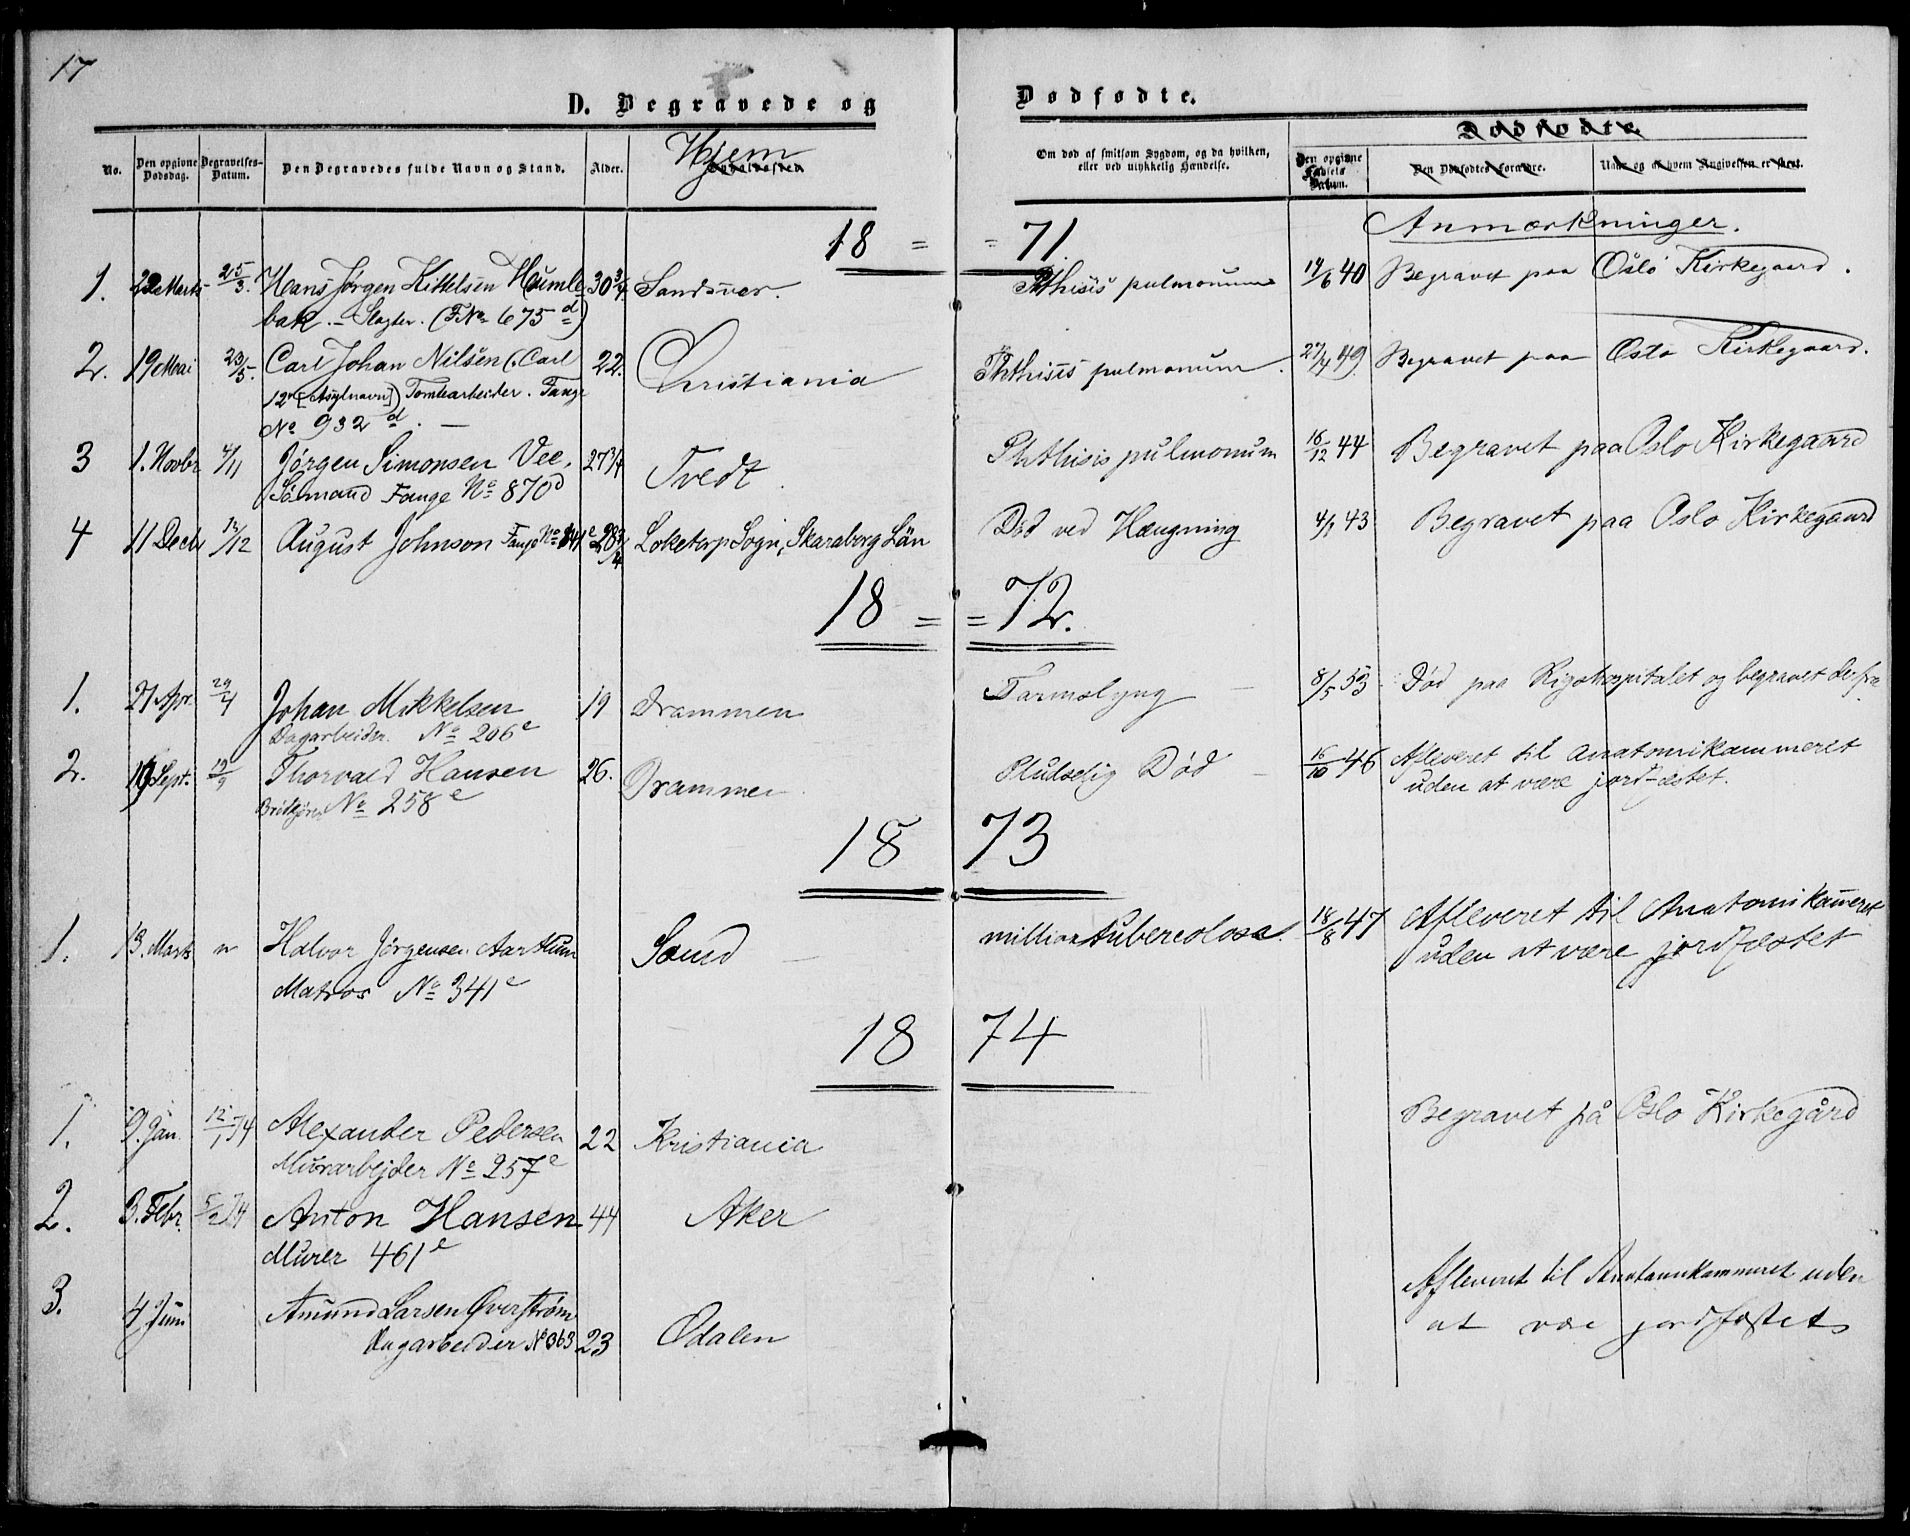 17
D. Begravede og Dødfødte.
No. | Den opgivne Dødsdag. | Begravelses-Datum. | Den Begravedes fulde Navn og Stand. | Alder. | Hjem | Om død af smitsom Sygdom, og da hvilken, eller ved ulykkelig Hændelse. | Den opgivne Fødsels Datum. | Dødfødte. Den Dødfødtes Forældre. | Naar og af hvem Angivelsen er skeet.
18 = = 71. Anmærkninger.
1. 22 Marts 25/3. Hans Jørgen Kittelsen Humle 30 3/4 Sandsvær. Phthisis pulmonum 14/6 40 Begravet paa Oslo Kirkegaard.
bak. – Slagter. (F. No 675 d)
2. 19 Mai 23/5. Carl Johan Nilsen (Carl 22. Christiania Phthisis pulmonum. 27/4 49 Begravet paa Oslo Kirkegaard.
12te [Asylnavn]) Tomtearbeider. Fange
No 932 d. –
3 1. Novbr 4/11 Jørgen Simonsen Vee, 27 3/4 Tvedt. Phthisis pulmonum 16/12 44 Begravet paa Oslo Kirkegaard
Sømand Fange No 870 d
4 11 Decbr 13/12 August Johnson Fange No 841 e 28 3/4 Loketorp Sogn, Skaraborg Län Død ved Hængning 4/1 43 Begravet paa Oslo Kirkegaard
18 = = 72.
1. 27 Apr. 29/4 Johan Mikkelsen 19 Drammen Tarmslyng – 8/5 53. Død paa Rigshospitalet og begravet derfra
Dagarbeider. No 206 e
2. 17 Sept. 19/9 Thorvald Hansen 26. Drammen. Pludselig Død – 16/10 46 Afleveret til Anatomikammeret
No 258 e uden at være jordfæstet.
18 73
1. 13. Marts " Halvor Jørgensen Aartun Sand – tuberculosa. 18/8 47 Afleveret til Anatomikammeret
Matros No 341 e uden at være jordfæstet
18 74
1. 9. Jan. 12/1 74 Alexander Pedersen 22 Kristiania Begravet på Oslo Kirkegård
Murarbejder No 257 e
2. 3. Febr. 5/2 74 Anton Hansen 44 Aker
Murer 461 e
3. 4 Juni Amund Larsen Øverstrøm Afleveret til Anatomikammeret uden
Dagarbeider No 363 23 Odalen at være jordfæstet